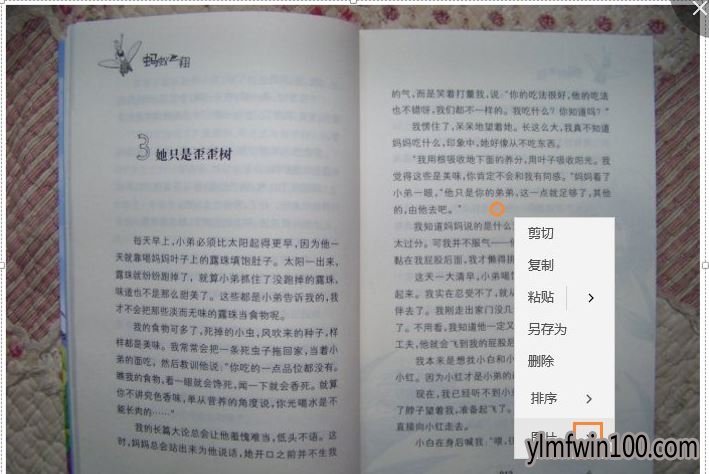 蚂蚁之翔
3 她只是歪歪树
每天早上，小弟必须比太阳起得更早，因为他一
天就靠喝妈妈叶子上的露珠填饱肚子。太阳一出来，
露珠就纷纷跑掉了，就算小弟抓住了没跑掉的露珠，
味道也不是那么甜美了。这些都是小弟告诉我的，我
才不会把那些淡而无味的露珠当食物呢。
我的食物可多了，死掉的小虫，风吹来的种子，样
样都是美味。我常常会把一条死虫子拖回家，当着小
弟的面吃，然后教训他说：“你吃的一点品位都没有。
瞧我的食物，看一眼就会馋死，闻一下就会香死。就算
你不讲究色香味，单从营养的角度说，你光喝水是不
能长肉的……”
我的长篇大论总会让他羞愧难当，低头不语。这
时，妈妈总会站出来为他说话，她开口之前并不生我
的气，而是笑着打量我，说：“你的吃法很好，他的吃法
也不错呀，我们都不一样的。我吃什么？你知道吗？”
我愣住了，呆呆地望着她。长这么大，我真不知道
妈妈吃什么，印象中，她好像从不吃东西。
“我用根吸收地下面的养分，用叶子吸收阳光。我
觉得这些是美味，你肯定不会和我有同感。”妈妈看了
小弟一眼，“他只是你的弟弟，这一点就足够了，其他
的，由他去吧。”
我知道妈妈说的是什么
太过分。可我并不服气——他
黏在我屁股后面，我才懒得
这天一大清早，小弟喝
起来。我实在忍受不了，就从
伴去了。我刚走出家门没几
了。不用看，我知道他一定又
工夫，他就会飞到我的屁股
我本来是想找小白和小
小红。因为小红才是小弟的
现在，我已经听不到小
了脖子望着我，准备起飞了。
直接向小红走去。
小白在身后喊我：“喂，
剪切
复制
粘贴
另存为
删除
排序
图片
ylmfwin100.com